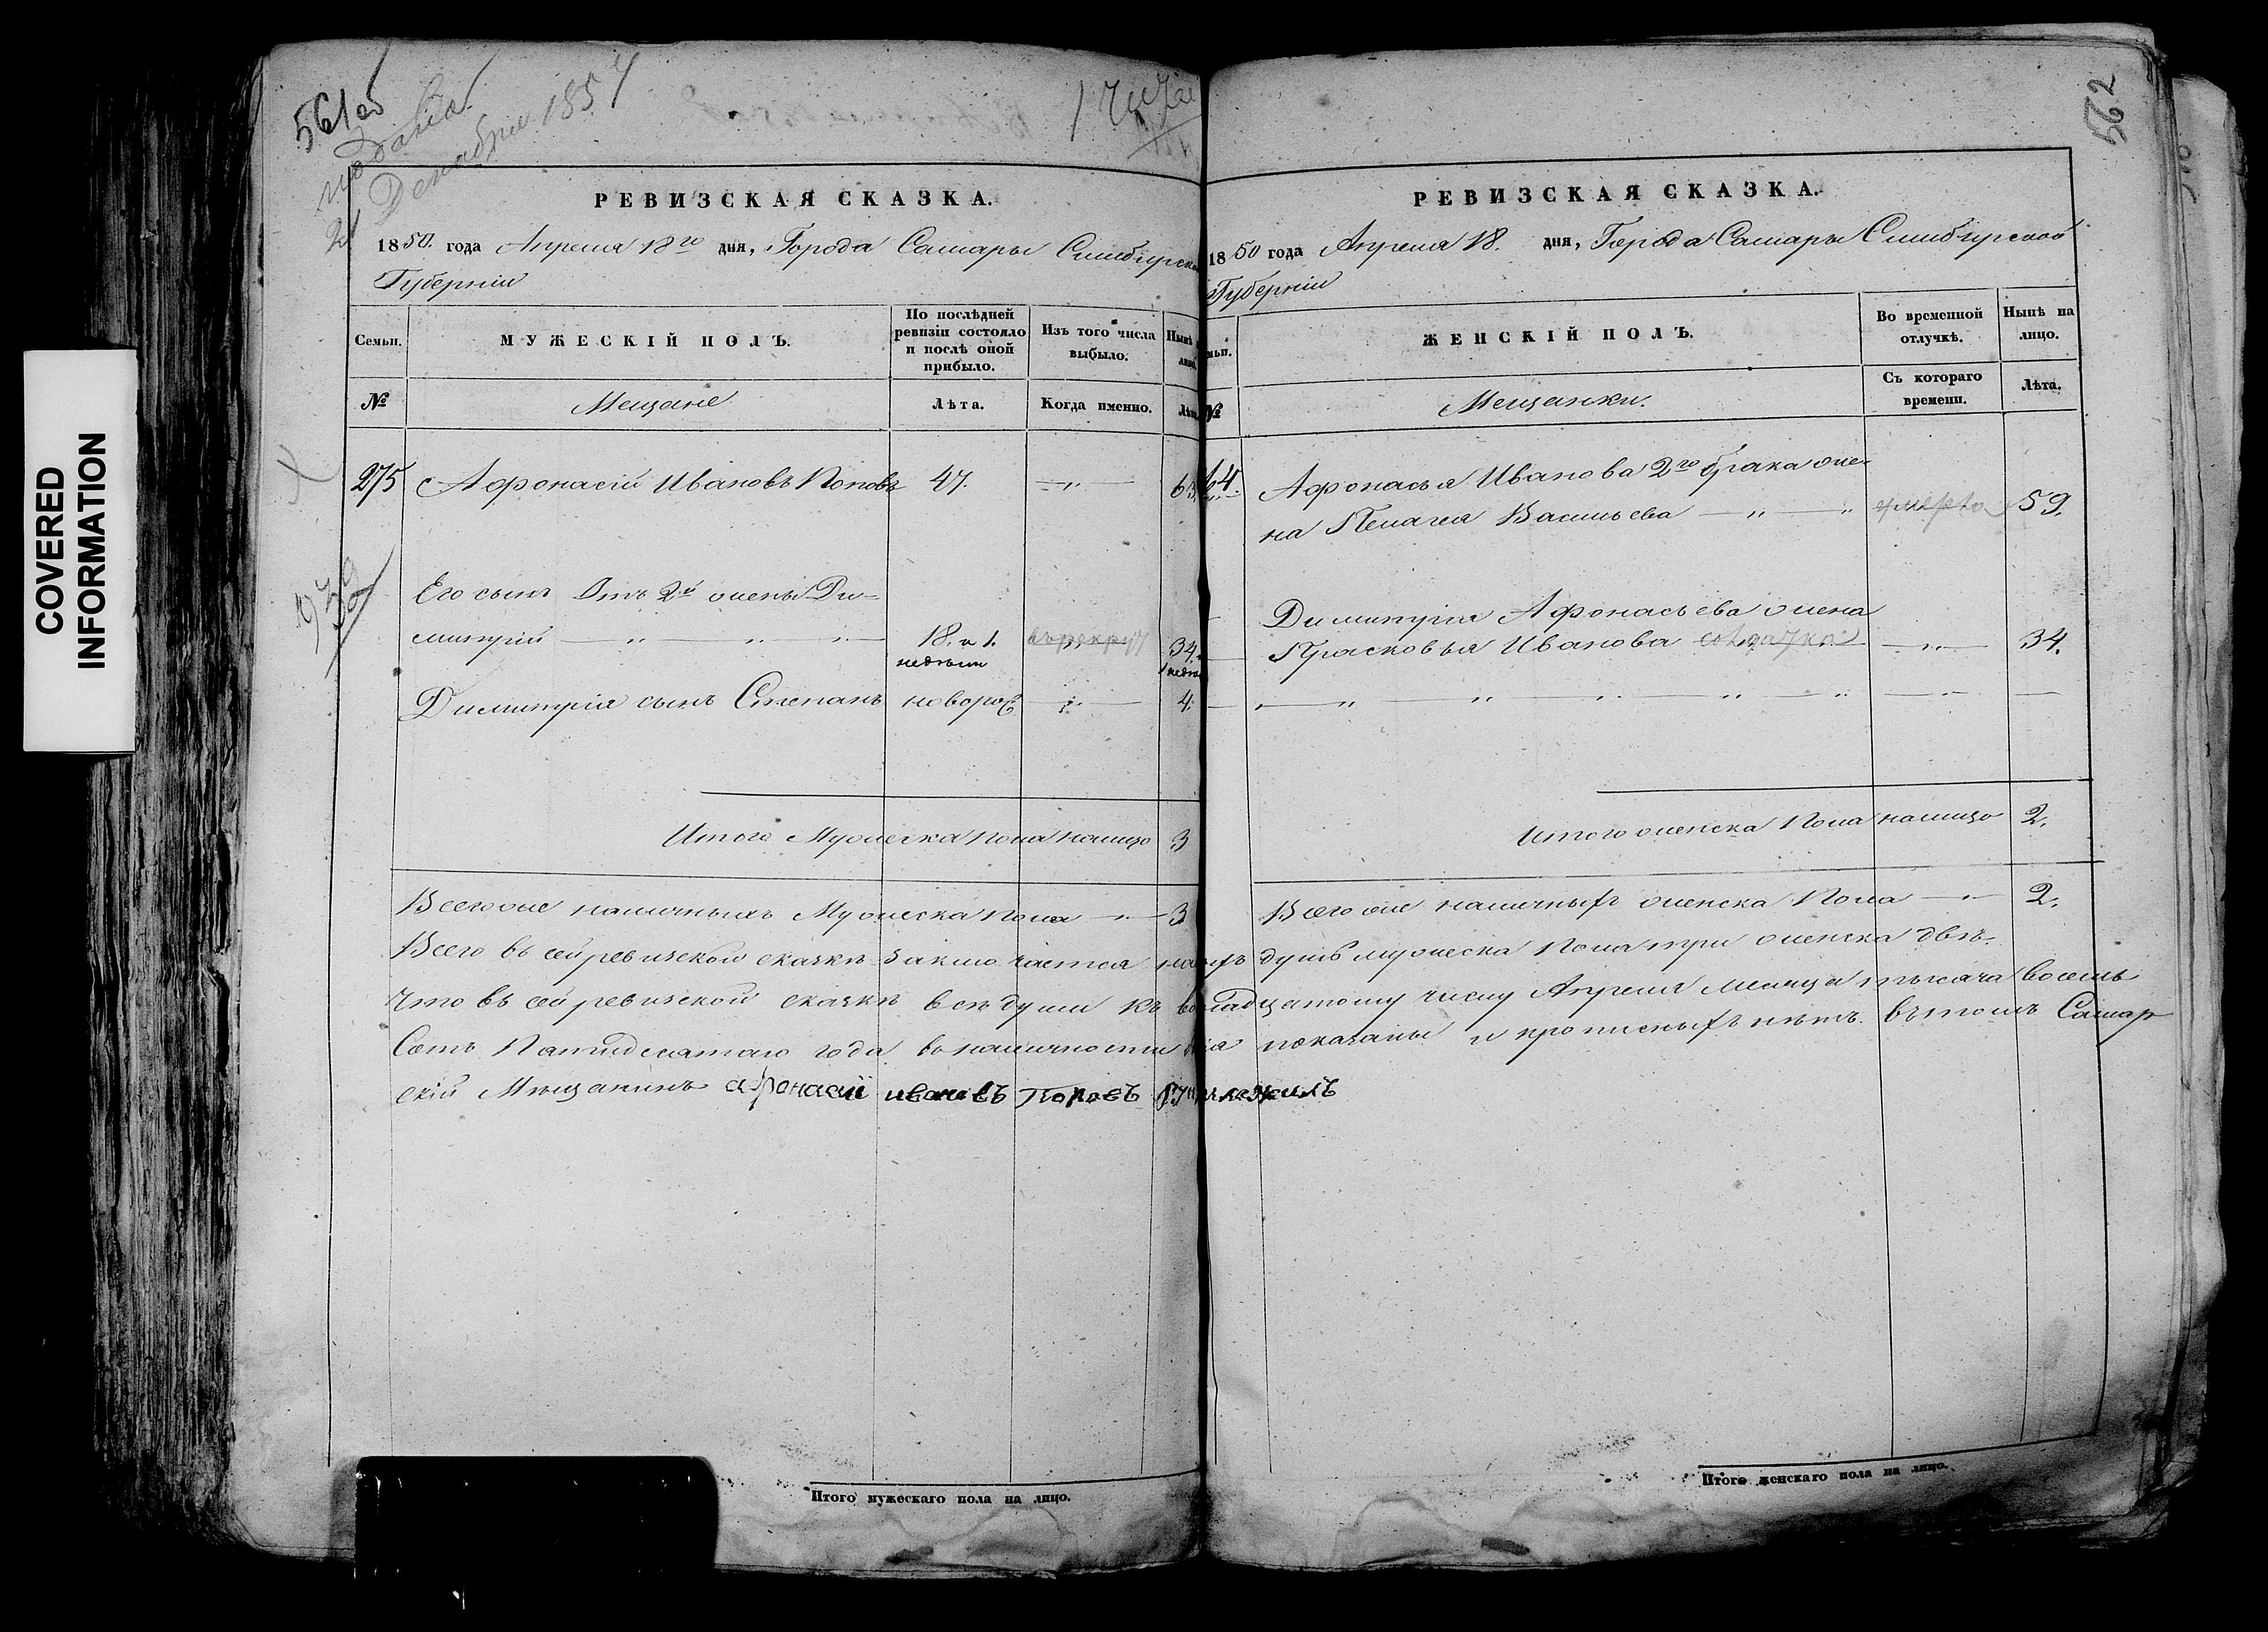 COVERED
INFORMATION
561об
подана
21 Декабря 1857
562
РЕВИЗСКАЯ СКАЗКА.
1850. года Апреля 18го дня, Города Самары Симбирской
Губерніи
Семьи.
МУЖЕСКІЙ ПОЛЪ.
По послѣдней
ревизіи состояло
и послѣ оной
прибыло.
Изъ того числа
выбыло.
Нынѣ
лицо.
№
Мещане
Лѣта.
Когда именно.
Лѣта.
275 Афонасій Ивановъ Поповъ 47. — „ — 63.
Его сынъ Отъ 2й жены Ди-
митрій — „ „ „ — 18. и 1. въ рекруты 34.
недели
Димитрія сынъ Степанъ новорож — „ — 4.
Итого Мужеска пола налицо 3
Всего же наличныхъ Мужеска пола — „ — 3
Итого мужескаго пола на лицо.
РЕВИЗСКАЯ СКАЗКА.
1850 года Апреля 18. дня, Города Самары Симбирской
Губерніи
ЖЕНСКІЙ ПОЛЪ.
Во временной
отлучкѣ.
Нынѣ на
лицо.
№
Мещанки.
Съ котораго
времени.
Лѣта.
Афонасья Иванова 2го брака же-
на Пелагея Васильева — „ — „ умерла 59.
Димитрія Афонасьева жена
Прасковья Иванова солдатка — „ — 34.
Итого женска Пола налицо 2.
Всего же наличныхъ женска Пола — „ — 2.
Всего въ сей ревизской сказкѣ заключается налиц душъ мужеска пола три женска двѣ.
Что въ сей ревизской сказкѣ всѣ души къ восемнадцатому числу Апреля месяца тысяча восемь
Сотъ Пятидесятаго года въ наличности показаны и прописныхъ нѣтъ. въ томъ Самар
скій Мѣщанинъ афонасей ивановъ Поповъ руку приложилъ
Итого женскаго пола на лицо.